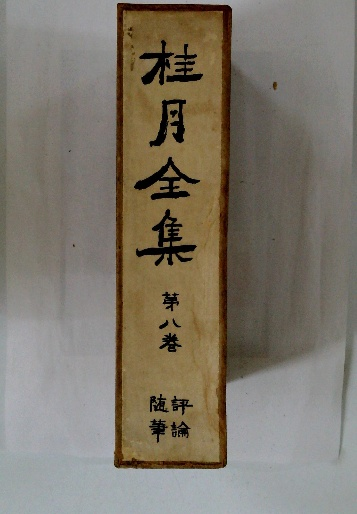 桂月全集
第八巻
評論
随筆